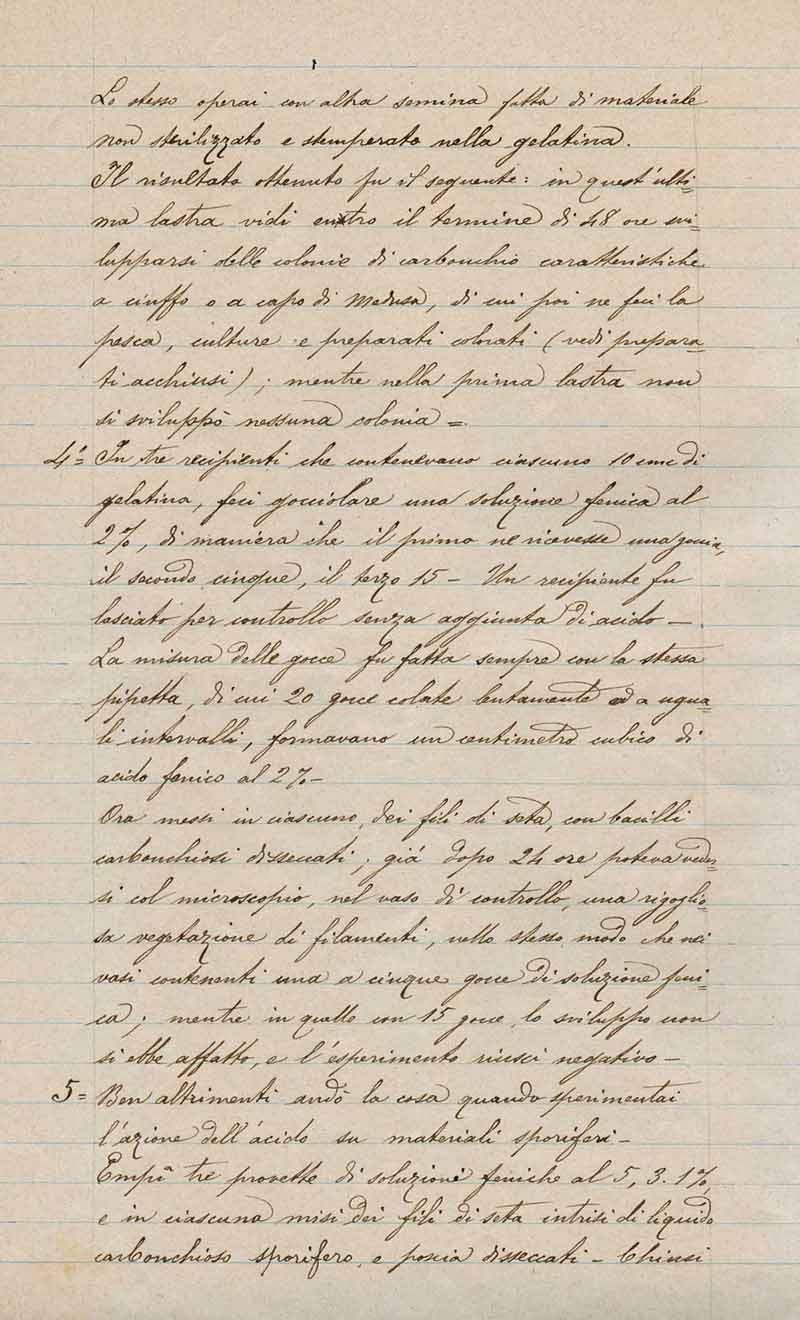 Lo stesso operai con altra semina fatta di materiale
non sterilizzato e stemperato nella gelatina.
Il risultato ottenuto fu il seguente: in quest'ulti=
ma lastra vidi entro il termine di 48 ore svi=
lupparsi delle colonie di carbonchio caratteristiche
a ciuffo o a capo di Medusa, di cui poi ne feci la
pesca, culture e preparati colorati (vedi prepara=
ti acchiusi); mentre nella prima lastra non
si sviluppò nessuna colonia =.
4°= In tre recipienti che contenevano ciascuno 10 cmc di
gelatina, feci gocciolare una soluzione fenica al
2%, di maniera che il primo ne ricevesse una goccia,
il secondo cinque, il terzo 15 - Un recipiente fu
lasciato per controllo senza aggiunta di acido -.
La misura delle gocce fu fatta sempre con la stessa
pipetta, di cui 20 gocce colate lentamente ed a ugua=
li intervalli, formavano un centimetro cubico di
acido fenico al 2% -
Ora messi in ciascuno, dei fili di seta, con bacilli
carbonchiosi disseccati; già dopo 24 ore poteva veder=
si col microscopio, nel vaso di controllo, una rigoglio=
sa vegetazione di filamenti, nello stesso modo che nei
vasi contenenti una a cinque gocce di soluzione feni=
ca; mentre in quello con 15 gocce lo sviluppo non
si ebbe affatto, e l'esperimento riuscì negativo -
5= Ben altrimenti andò la cosa quando sperimentai
l'azione dell'acido su materiali sporiferi -
Empii tre provette di soluzioni feniche al 5, 3. 1%,
e in ciascuna misi dei fili di seta intrisi di liquido
carbonchioso sporifero, e poscia disseccati - Chiusi